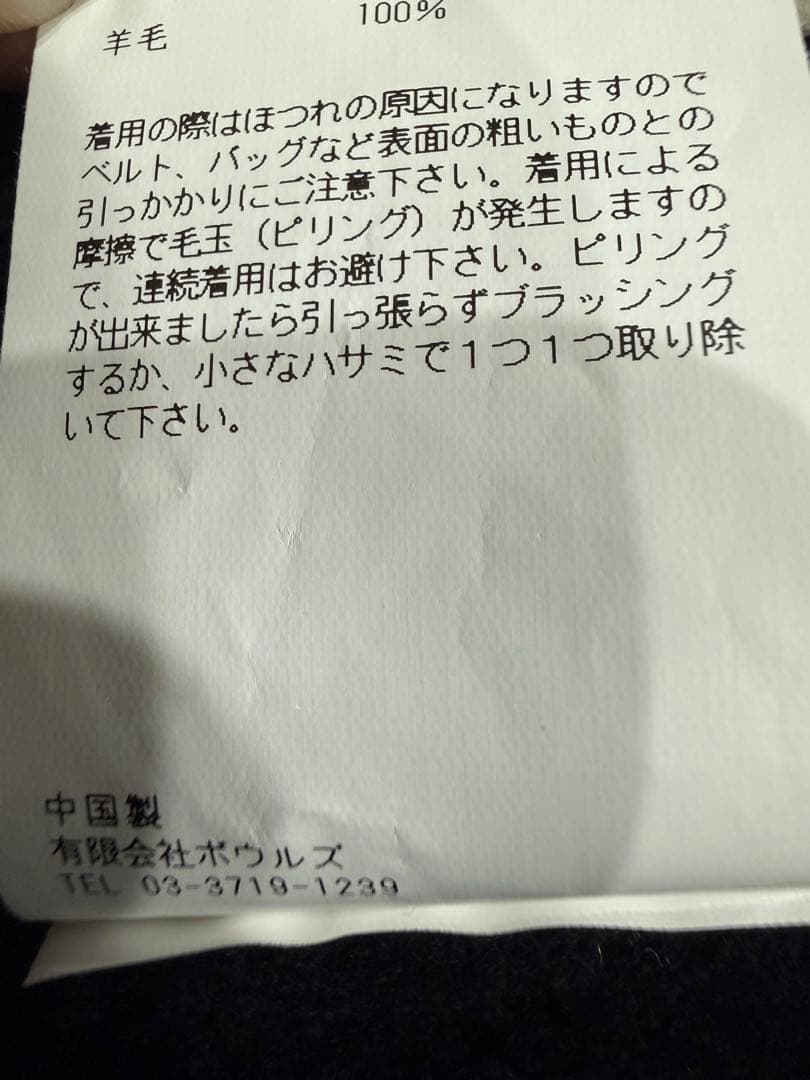 羊毛 100%
着用の際はほつれの原因になりますので
ベルト、バッグなど表面の粗いものとの
引っかかりにご注意下さい。着用による
摩擦で毛玉（ピリング）が発生しますの
で、連続着用はお避け下さい。ピリング
が出来ましたら引っ張らずブラッシング
するか、小さなハサミで１つ１つ取り除
いて下さい。
中国製
有限会社ボウルズ
TEL 03-3719-1239